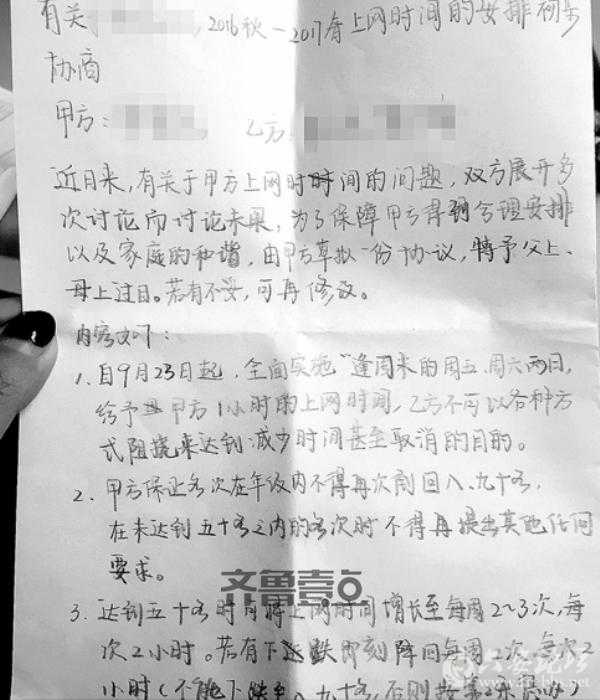 有关 ,2016秋-2017春上网时间的安排初步
协商
甲方: 乙方:
近日来,有关于甲方上网时时间的问题,双方展开多
次讨论而讨论未果,为了保障甲方得到合理安排
以及家庭的和谐,由甲方草拟一份协议,特予父上、
母上过目。若有不妥,可再修改。
内容如下:
1.自9月23日起,全面实施“逢周末的周五、周六两日,
给予甲方1小时的上网时间,乙方不可以各种方
式阻挠来达到减少时间甚至取消的目的。
2、甲方保证名次在年级内不得再次削回八、九十名,
在未达到五十名之内的名次时不得再提出其他任何
要求。
齐鲁壹点
3.达到五十名时 将上网时间增长至每周2~3次,每
次2小时。若有下 跌即刻降回每周 次,每次2
小时(不能下跌至八、九十名,否则